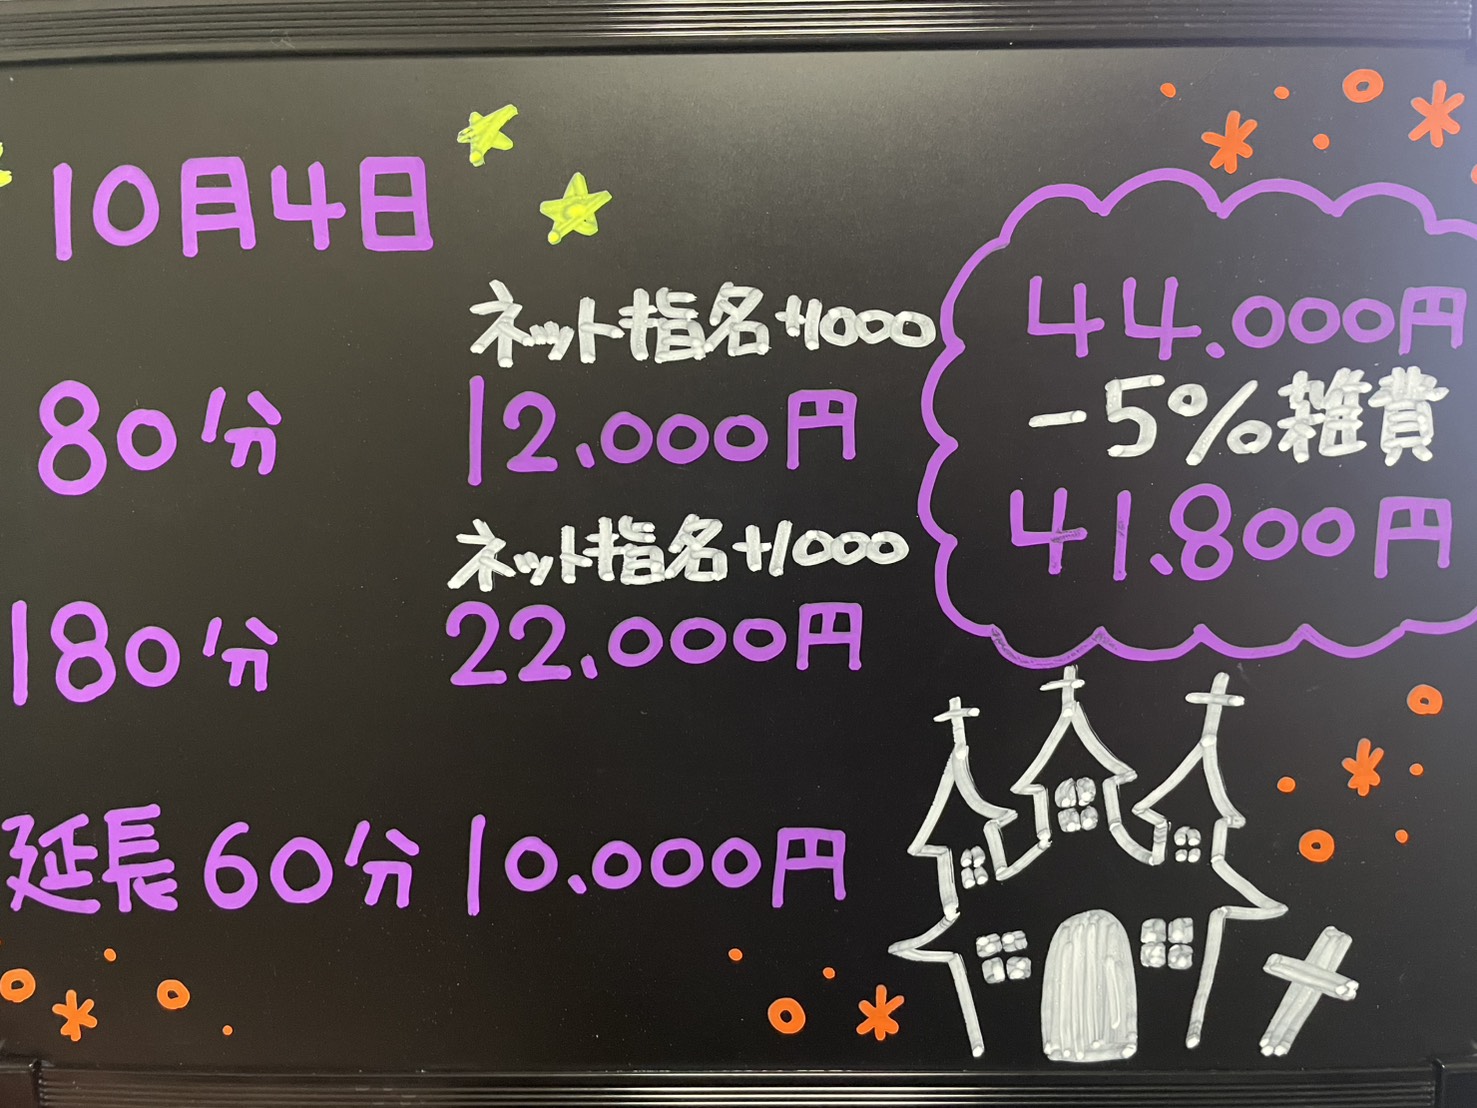 10月4日
ネット指名+1000
80分 12.000円
ネット指名+1000
180分 22.000円
延長60分 10.000円
44.000円
-5%雑費
41.800円